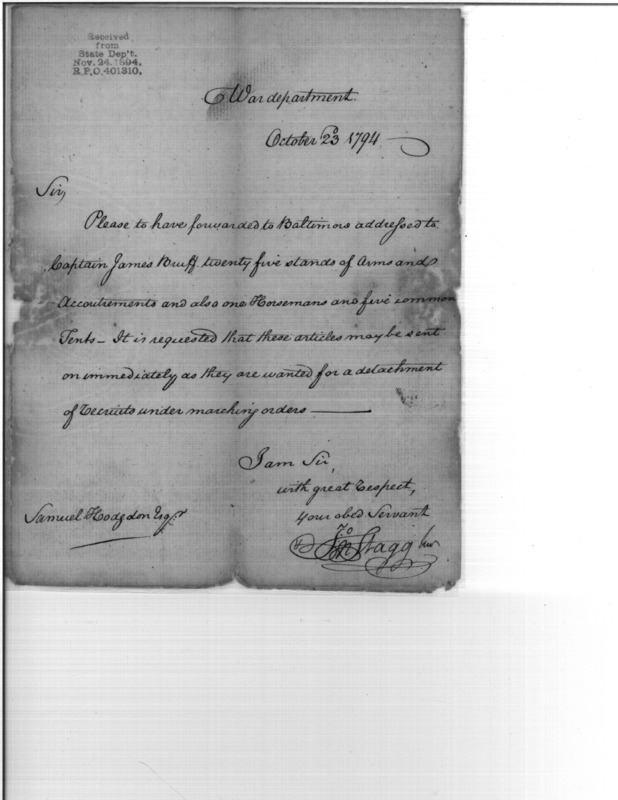 Received
from
State Dep't.
Nov. 24. 1894.
R.P.O. 401310.
War department.
October 23 1794
Sir,
Please to have forwarded to Baltimore addressed to
Captain James Bruff twenty five stands of Arms and
Accoutrements and also one Horsemans and five common
Tents – It is requested that these articles may be sent
on immediately as they are wanted for a detachment
of recruits under marching orders
I am Sir,
with great respect,
your obed Servant
Samuel Hodgdon Esqr
Jno Stagg Junr